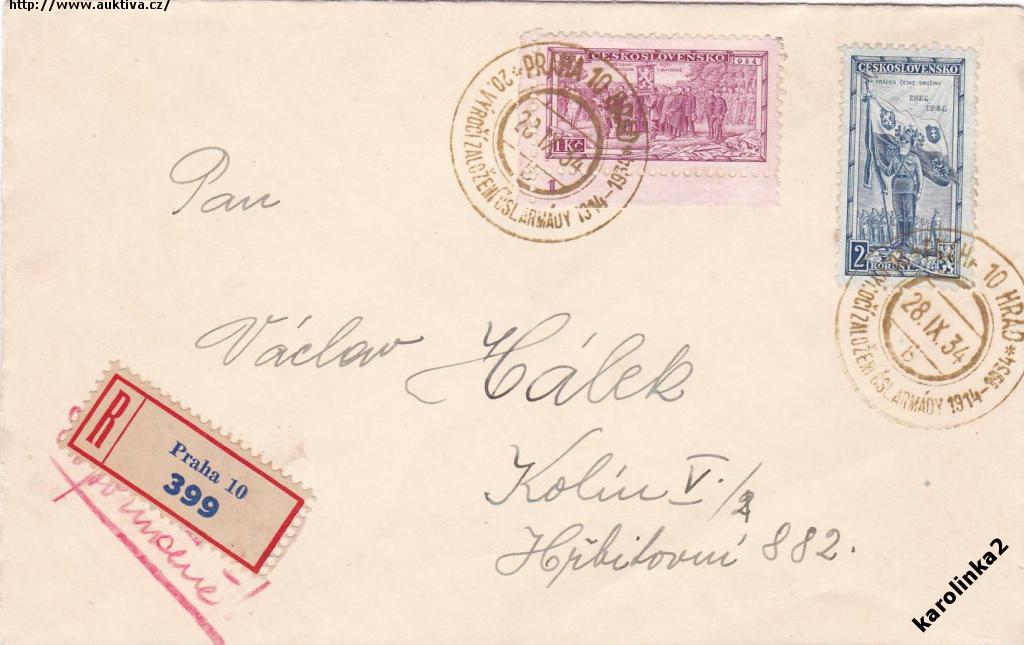 http://www.auktiva.cz/
ČESKOSLOVENSKO
1934
1 Kč
1
* PRAHA 10 HRAD *
28.IX.34
20. VÝROČÍ ZALOŽENÍ ČSL. ARMÁDY 1914-1934
ČESKOSLOVENSKO
PRAPOR ČESKÉ DRUŽINY
1914
1934
2
KORUNY
10 HRAD *
28.IX.34
VÝROČÍ ZALOŽENÍ ČSL. ARMÁDY 1914-1934
Pan
Václav Hálek
Kolín V./2
Hřbitovní 882.
R
Praha 10
399
Doporučeně!
karolinka2